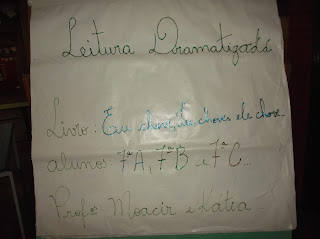 Leitura Dramatizada
Livro: Eu chovo, tu choves, ele chove...
alunos: 7ªA, 7ªB e 7ªC...
Profºs Moacir e Kátia...